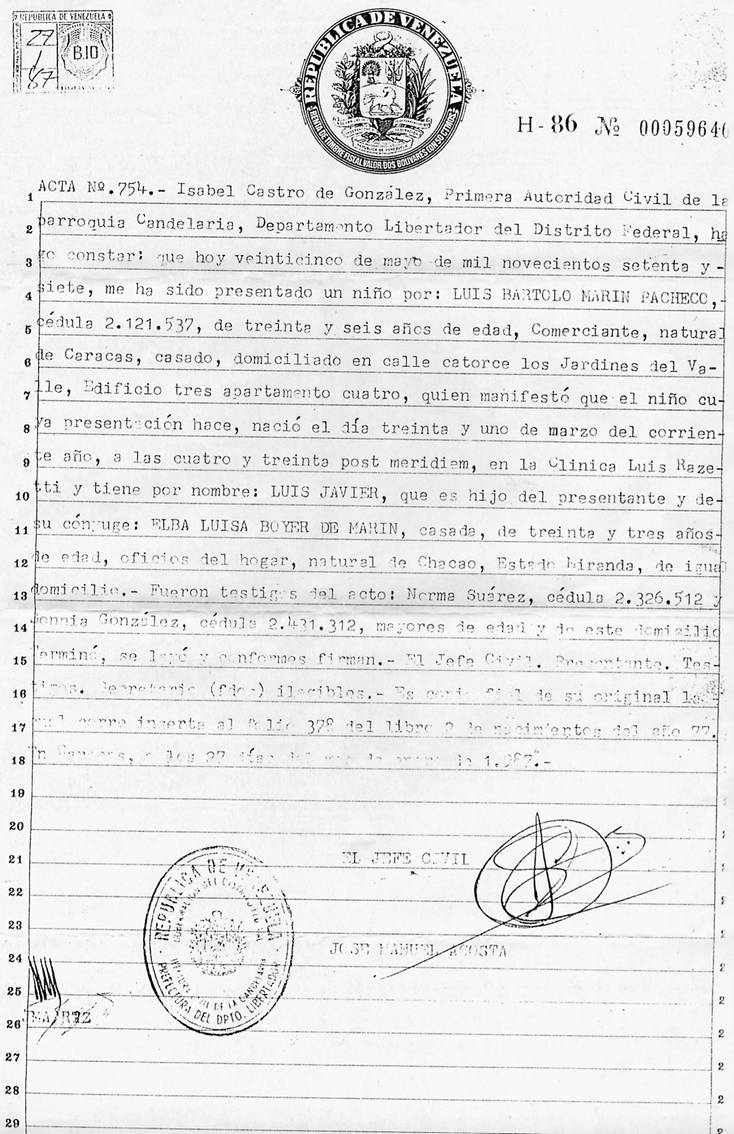 REPUBLICA DE VENEZUELA
27
1
87
B.10
REPUBLICA DE VENEZUELA
RENTA DE TIMBRE FISCAL VALOR DOS BOLIVARES
H-86 № 0005964
1 ACTA Nº.754.- Isabel Castro de González, Primera Autoridad Civil de la
2 parroquia Candelaria, Departamento Libertador del Distrito Federal, ha
3 go constar: que hoy veinticinco de mayo de mil novecientos setenta y -
4 siete, me ha sido presentado un niño por: LUIS BARTOLO MARIN PACHECO,-
5 cédula 2.121.537, de treinta y seis años de edad, Comerciante, natural
6 de Caracas, casado, domiciliado en calle catorce los Jardines del Va-
7 lle, Edificio tres apartamento cuatro, quien manifestó que el niño cu-
8 ya presentación hace, nació el día treinta y uno de marzo del corrien-
9 te año, a las cuatro y treinta post meridiem, en la Clinica Luis Raze-
10 tti y tiene por nombre: LUIS JAVIER, que es hijo del presentante y de-
11 su cónyuge: ELBA LUISA BOYER DE MARIN, casada, de treinta y tres años-
12 de edad, oficios del hogar, natural de Chacao, Estado Miranda, de igual
13 domicilio.- Fueron testigos del acto: Norma Suárez, cédula 2.326.512 y
14 Sonnia González, cédula 2.431.312, mayores de edad y de este domicilio
15 Terminó, se leyó y conformes firman.- El Jefe Civil. Presentante. Tes-
16 tigos. Secretario (fdos) ilegibles.- Es copia fiel de su original la-
17 cual corre inserta al folio 378 del libro 2 de nacimientos del año 77.
18 En Caracas, a los 27 días del mes de enero de 1.987.-
19
20
21 EL JEFE CIVIL
22
23
JOSE MANUEL ACOSTA
24
25
26
27
28
29
REPUBLICA DE VENEZUELA
DE LA CANDELARIA
PREFECTURA DEL DPTO. LIBERTADOR